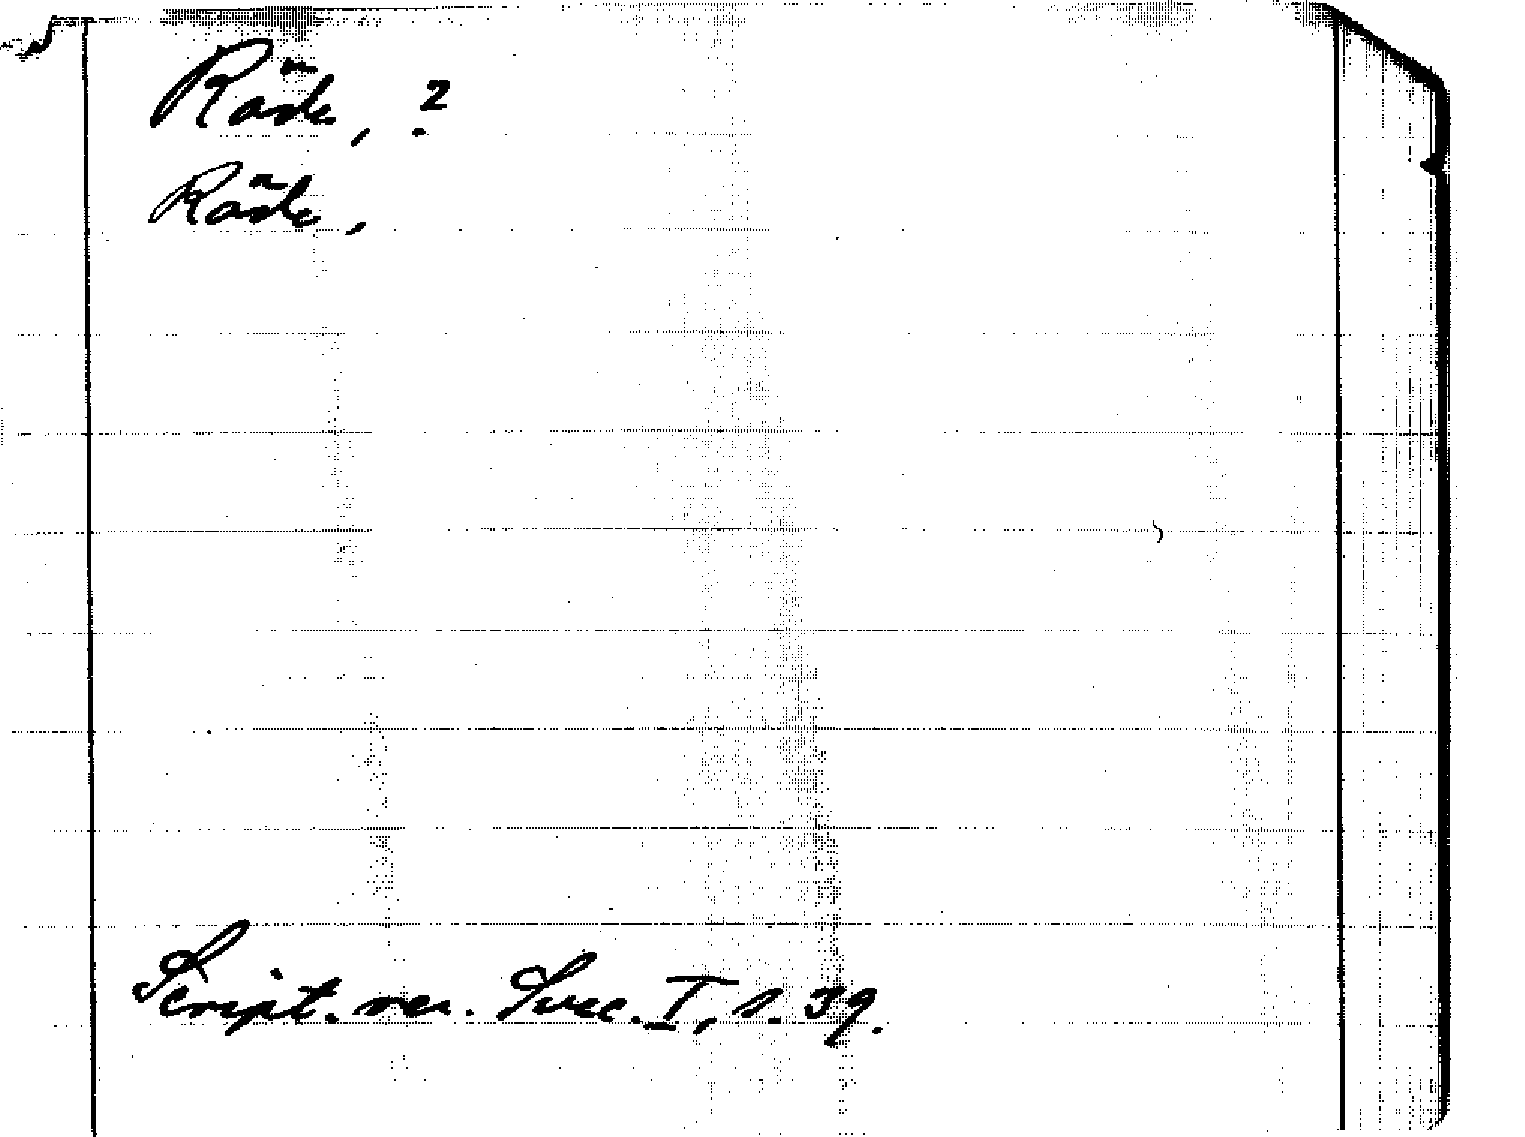 Räde, ?
Räde,
Script. rer. Suec. I, s. 39.